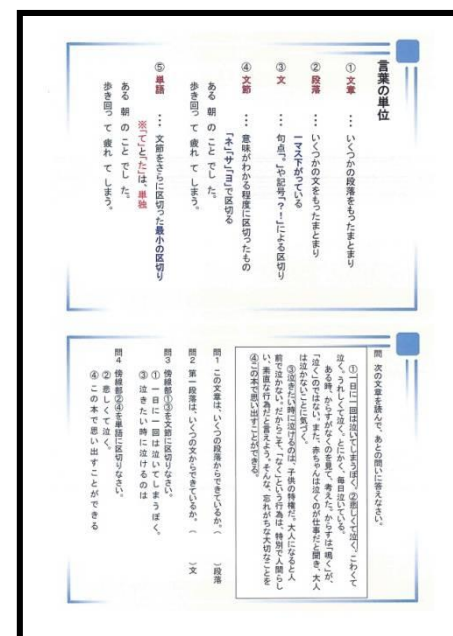 言葉の単位
① 文章 ・・・ いくつかの段落をもったまとまり
② 段落 ・・・ いくつかの文をもったまとまり
一マス下がっている
③ 文 ・・・ 句点「。」や記号「？！」による区切り
④ 文節 ・・・ 意味がわかる程度に区切ったもの
「ネ」「サ」「ヨ」で区切る
ある 朝 の こと でし た。
歩き回っ て 疲れ て しまう。
⑤ 単語 ・・・ 文節をさらに区切った最小の区切り
※「て」と「た」は、単独
ある 朝 の こと でし た。
歩き回っ て 疲れ て しまう。
問 次の文章を読んで、あとの問いに答えなさい。
①一日に一回は泣いてしまうぼく。②悲しくて泣く、こわくて
泣く、うれしくて泣く、とにかく、毎日泣いている。
ある時、からすがなくのを見て、考えた。からすは「鳴く」が、
「泣く」のではない。また、赤ちゃんは泣くのが仕事だと聞き、大人
は泣かないことに気づく。
③泣きたい時に泣けるのは、子供の特権だ。大人になると人
前で泣かない。だからこそ、「なく」という行為は、特別で人間らし
い、素直な行為だと言えよう。そんな、忘れがちな大切なことを
④この本で思い出すことができる。
問１ この文章は、いくつの段落からできているか。（ ）段落
問２ 第一段落は、いくつの文からできているか。（ ）文
問３ 傍線部①③を文節に区切りなさい。
① 一日に一回は泣いてしまうぼく。
③ 泣きたい時に泣けるのは
問４ 傍線部②④を単語に区切りなさい。
② 悲しくて泣く。
④ この本で思い出すことができる